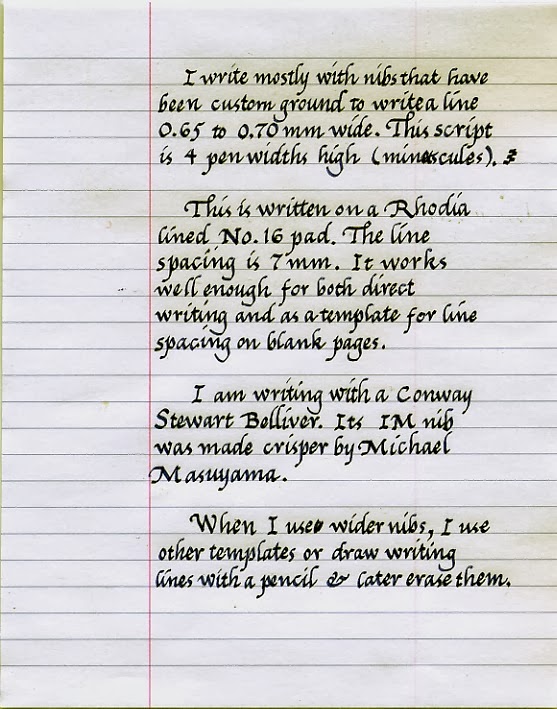 I write mostly with nibs that have
been custom ground to write a line
0.65 to 0.70 mm wide. This script
is 4 pen widths high (minuscules).
This is written on a Rhodia
lined No. 16 pad. The line
spacing is 7 mm. It works
well enough for both direct
writing and as a template for line
spacing on blank pages.
I am writing with a Conway
Stewart Belliver. Its IM nib
was made crisper by Michael
Masuyama.
When I use wider nibs, I use
other templates or draw writing
lines with a pencil & later erase them.